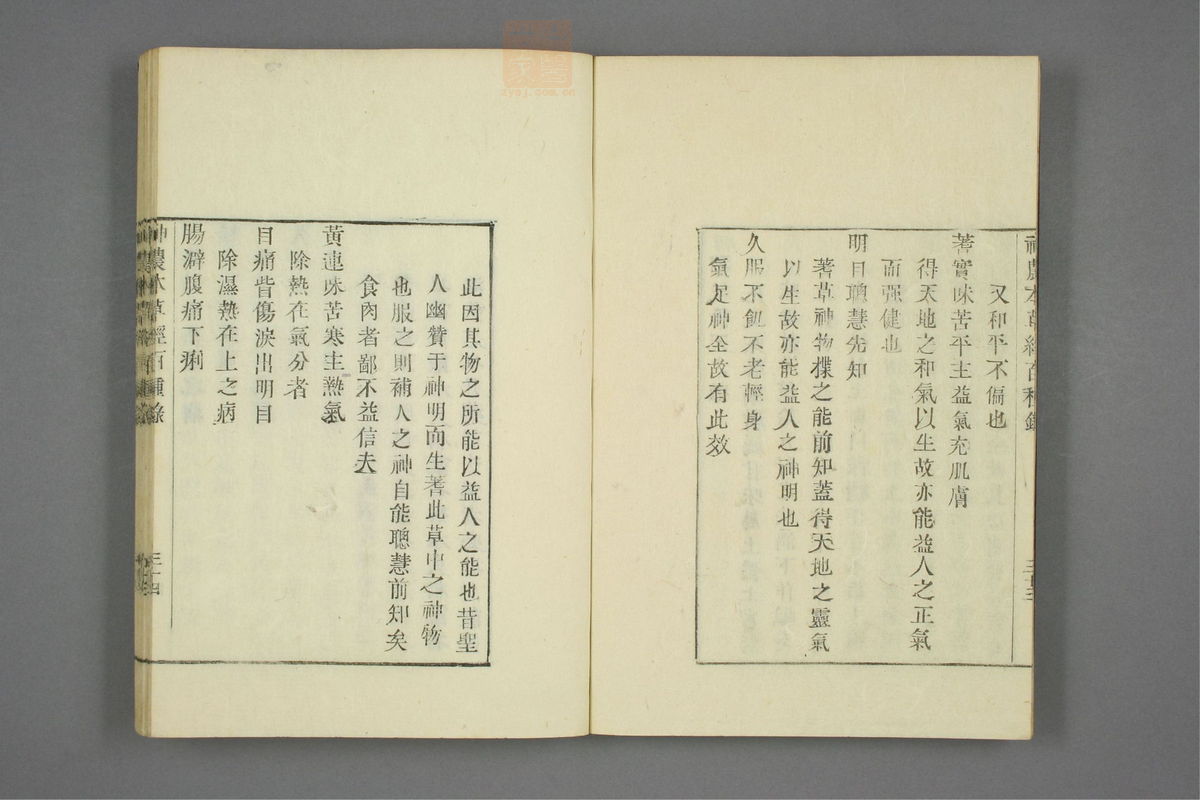 神農本草經百種錄
又和平不偏也
蓍實味苦平主益氣充肌膚
得天地之和氣以生故亦能益人之正氣
而强健也
明目聰慧先知
蓍草神物揲之能前知蓋得天地之靈氣
以生故亦能益人之神明也
久服不飢不老輕身
氣足神全故有此效
三十三
此因其物之所能以益人之能也昔聖
人幽贊于神明而生蓍此草中之神物
也服之則補人之神自能聰慧前知矣
食肉者鄙不益信夫
黃連味苦寒主熱氣
除熱在氣分者
目痛眥傷淚出明目
除濕熱在上之病
腸澼腹痛下痢
神農本草經百種錄
三十四
zysj.com.cn